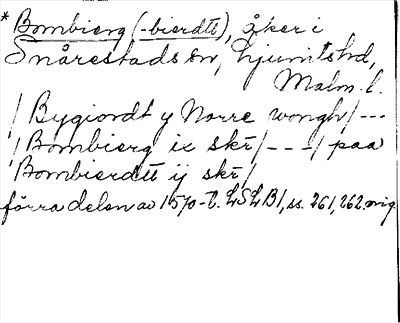 * Bombierg (-bierdtt), åker i
Snårestads sn, Ljunits hd,
Malm. l.
/ Bygiordt y Norre wongh/ ---
/ Bombierg ix skr/ --- / paa
Bombierdtt ij skr/
förra delen av 1570-t. LSLB1, ss. 261, 262. orig.